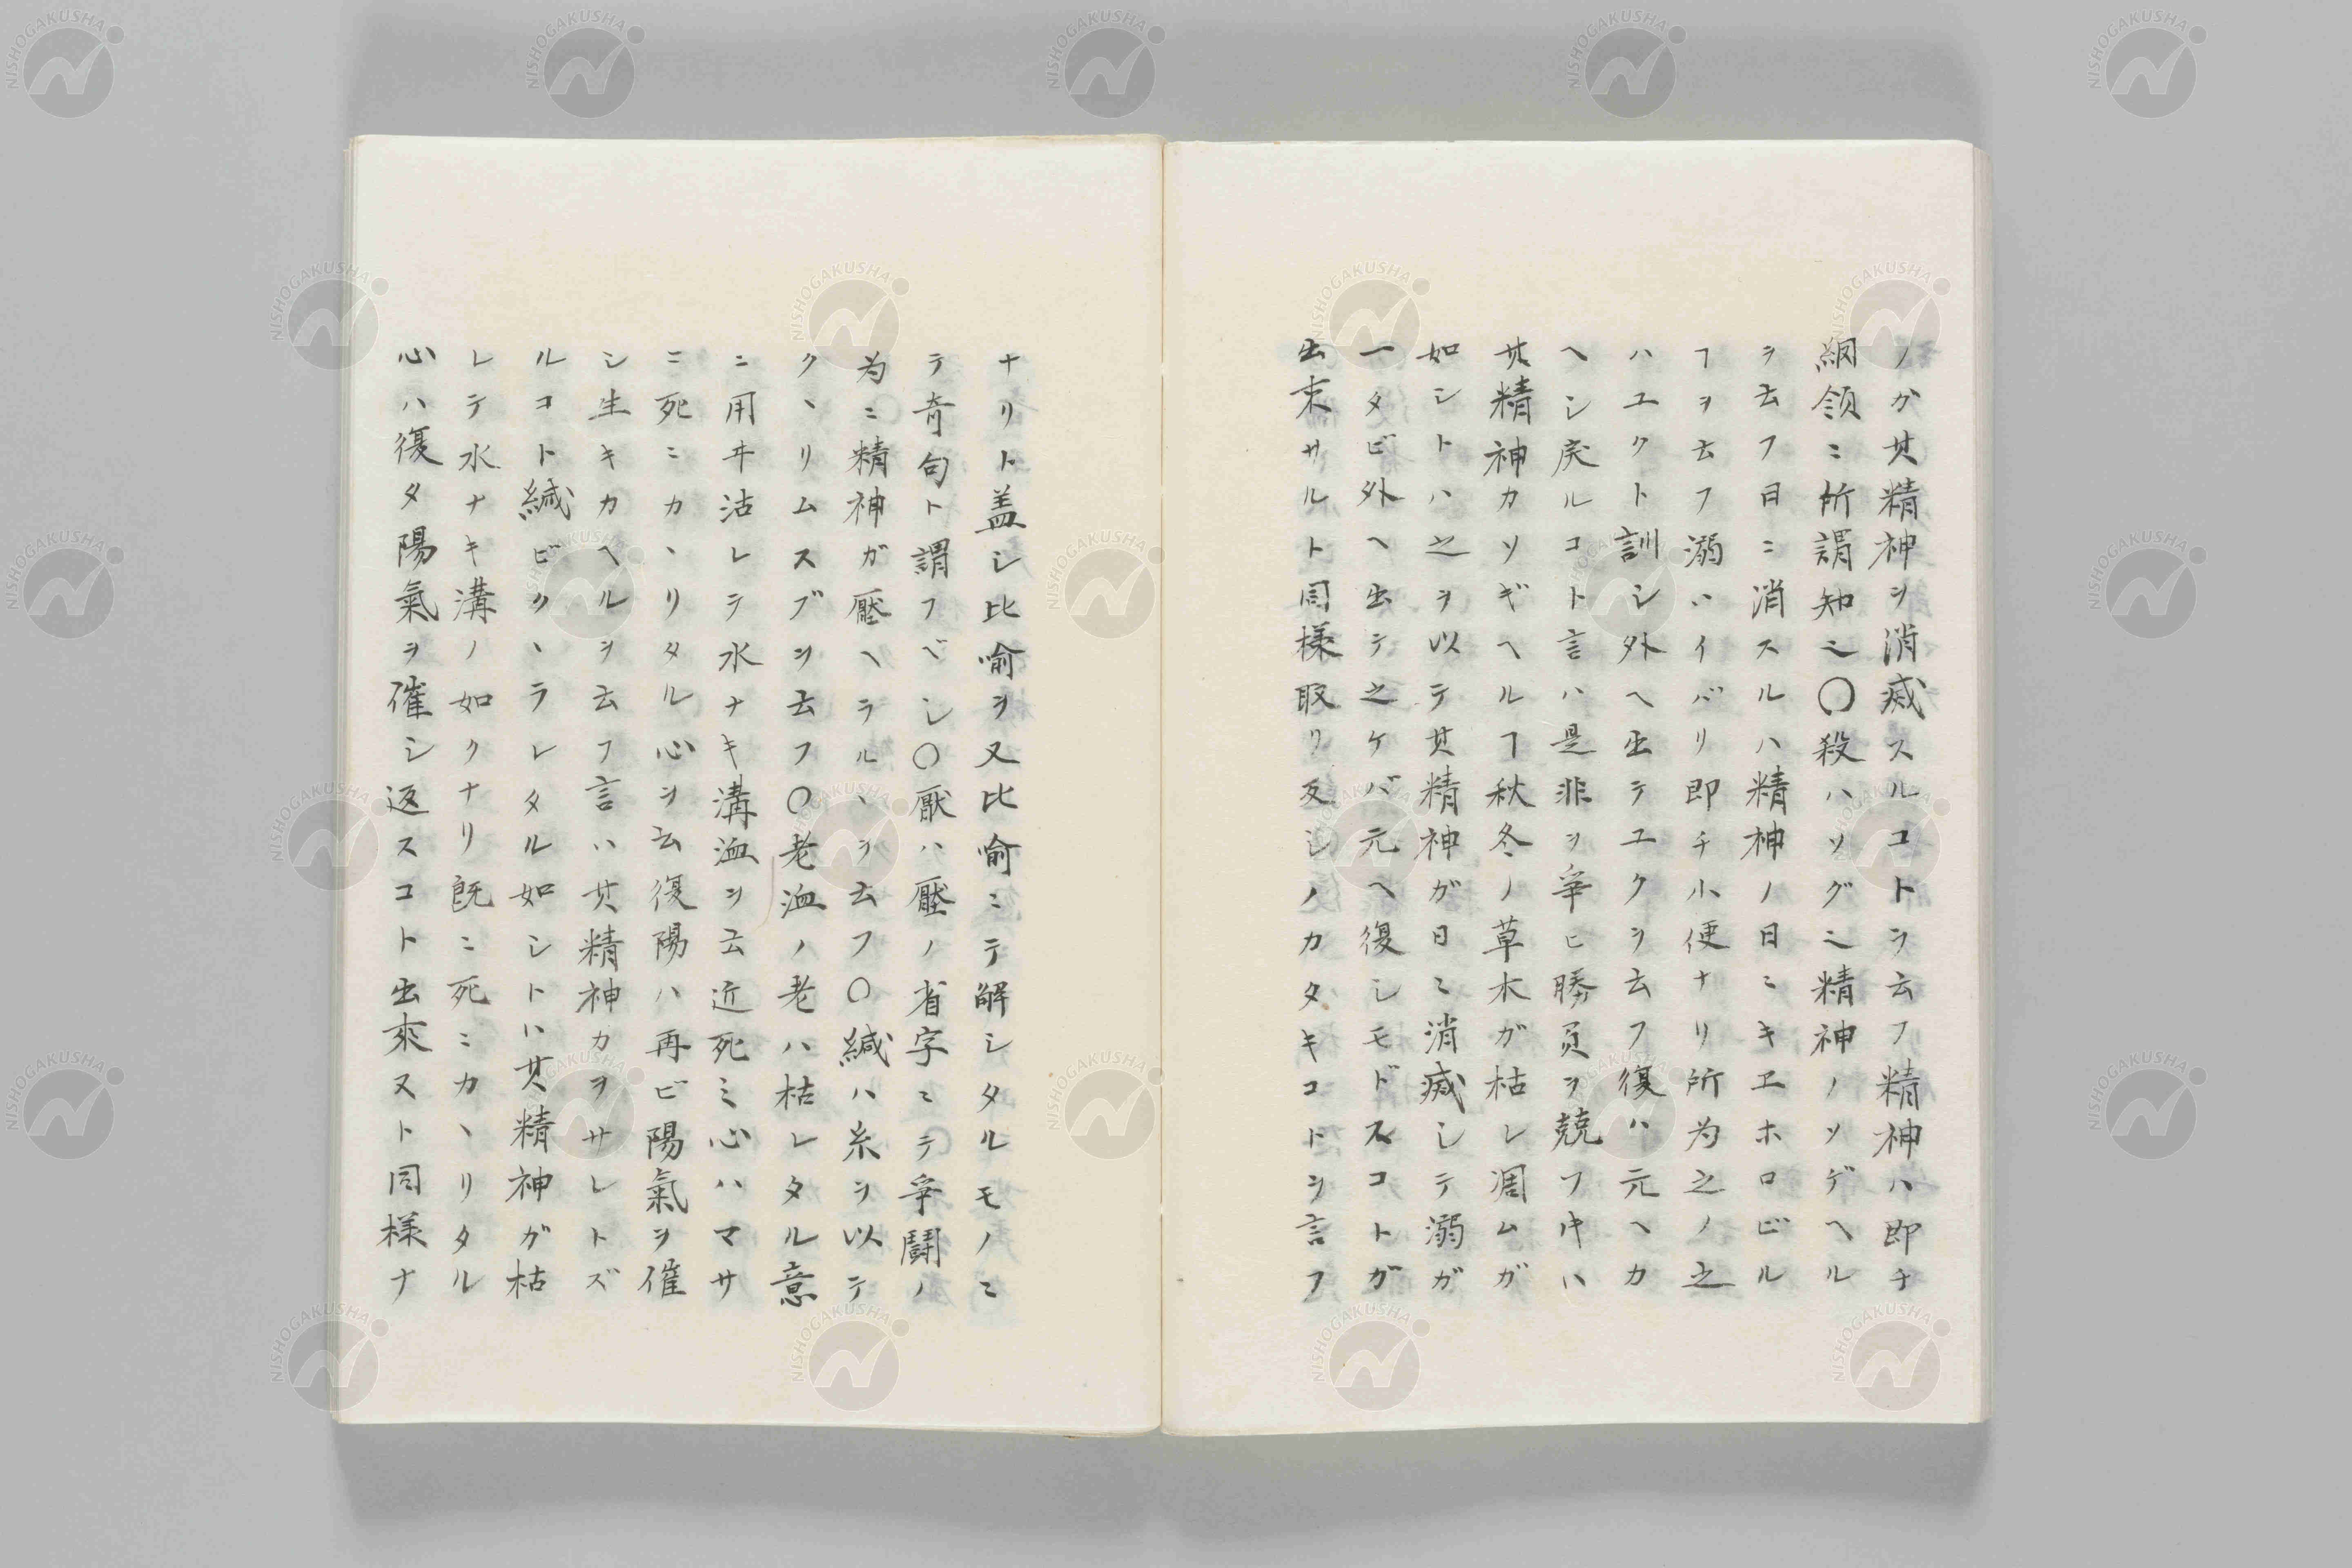 ノガ其精神ヲ消滅スルコトヲ云フ精神ハ即チ
綱領ニ所謂知ニ〇殺ハソグニ精神ノソゲヘル
ヲ云フ日ニ消スルハ精神ノ日ミキエホロビル
ヿヲ云フ溺ハイバリ即チ小便ナリ所为之ノ之
ハユクト訓シ外ヘ出テユクヲ云フ復ハ元ヘカ
ヘシ戻ルコト言ハ是非ヲ爭ヒ勝負ヲ競フ中ハ
其精神カソギヘルヿ秋冬ノ草木ガ枯レ凋ムガ
如シトハ之ヲ以テ其精神ガ日ミ消滅シテ溺ガ
一タビ外ヘ出テ之ケバ元ヘ復シモドスコトガ
出来サルト同様取リ反シノカタキコトヲ言フ
ナリト盖シ比喻ヲ又比喻ニテ解シタルモノニ
テ奇句ト謂フベシ〇厭ハ壓ノ省字ミテ爭鬪ノ
为ニ精神ガ壓ヘラルヽヲ云フ〇緘ハ糸ヲ以テ
クヽリムスブヲ云フ〇老洫ノ老ハ枯レタル意
ニ用ヰ沽レテ水ナキ溝洫ヲ云近死ミ心ハマサ
ニ死ニカヽリタル心ヲ云復陽ハ再ビ陽氣ヲ催
シ生キカヘルヲ云フ言ハ其精神カヲサレトズ
ルコト緘ビクヽラレタル如シトハ其精神ガ枯
レテ水ナキ溝ノ如クナリ既ニ死ミカヽリタル
心ハ復タ陽氣ヲ催シ返スコト出來ヌト同様ナ
NISHOGAKUSHA